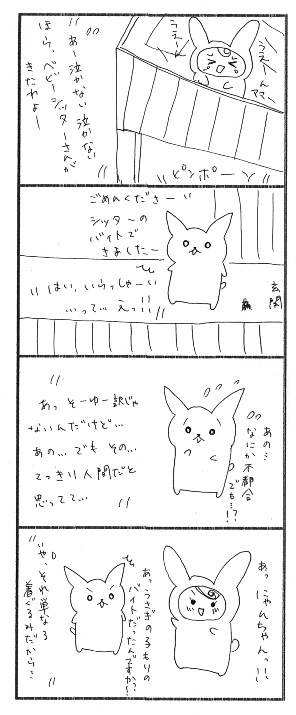 うえーん
うえーん
ママー
"あー泣かない泣かない
ほら、ベビーシッターさんが
きたわよー"
"ピンポーン"
ごめんくださーい
シッターの
バイトで
きましたー
"はい、いらっしゃーい
…って…えっ!!"
玄関
あの…
なにか不都合
でも…?
"あっそーゆー訳じゃ
ないんだけど…
あの…でもその…
てっきり人間だと
思ってて…"
あっ
にゃんちゃんっ!!
あっうさぎの子もりの
バイトだったんですか?
"いや、それ単なる
着ぐるみだから…"